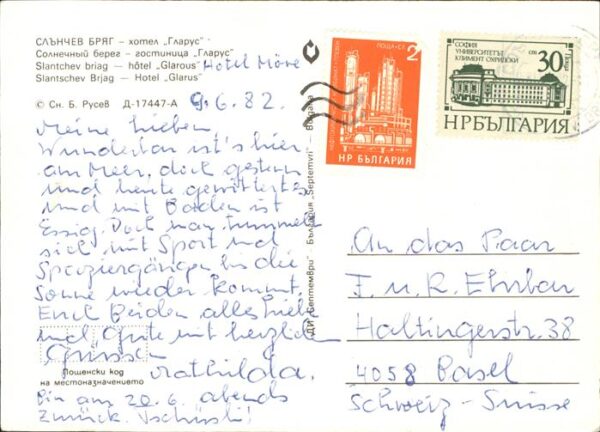 СЛЪНЧЕВ БРЯГ – хотел „Гларус"
Солнечный берег – гостиница „Гларус"
Slantchev briag – hôtel „Glarous"
Slantschev Brjag – Hotel „Glarus"
Hotel Möve
© Сн. Б. Русев Д-17447-А
9.6.82.
Meine Lieben,
Wunderbar ist's hier
am Meer, doch gestern
und heute gewittert es
und mit Baden ist
Essig. Doch man tummelt
sich mit Sport und
Spaziergängen bis die
Sonne wieder kommt.
Euch Beiden alles Liebe
und Gute mit herzlichen
Grüssen
Mathilda.
Пощенски код
на местоназначението
Bin am 20.6. abends
zurück. Tschüssli!
ДИ „Септември" България „Septemvri" – Bulgaria
ПОЩА • СТ. 2
НР БЪЛГАРИЯ
СОФИЯ
УНИВЕРСИТЕТЪТ
КЛИМЕНТ ОХРИДСКИ
30 ст.
Поща
НР БЪЛГАРИЯ
An das Paar
F. u. R. Ehrbar
Haltingerstr. 38
4058 Basel
Schweiz - Suisse